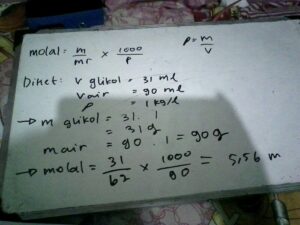 molal = m/mr x 1000/P
ρ = m/v
Diket: V glikol = 31 ml
V air = 90 ml
ρ = 1 kg/l
→ m glikol = 31 . 1
= 31 g
m air = 90 . 1 = 90 g
→ molal = 31/62 x 1000/90 = 5,56 m